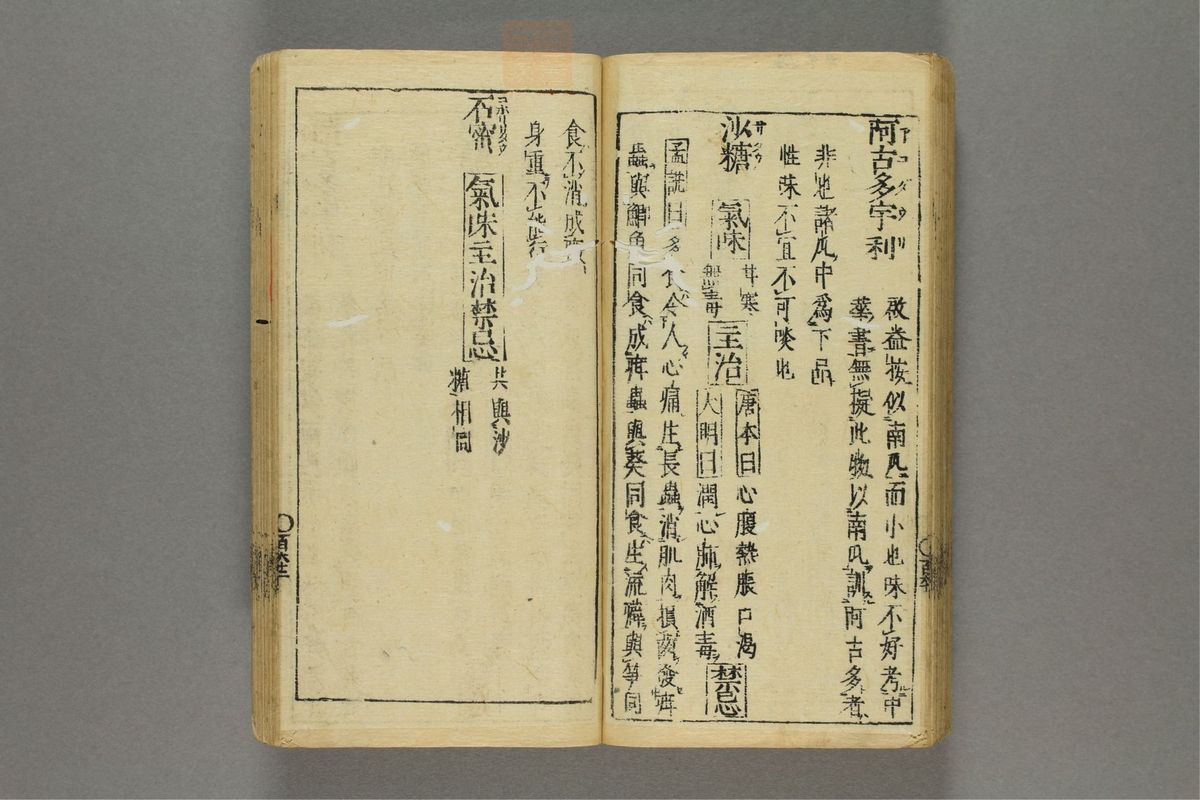 阿古多宇利
アコダウリ
啓益按似南瓜而小也味不好考中
華書無擬此物以南瓜訓阿古多者
非也諸瓜中為下品
性味不宜不可啖也
沙糖
サタウ
氣味 甘寒
無毒
主治
唐本曰心腹熱脹口渴
大明曰潤心肺解酒毒
禁忌
孟詵曰多食令人心痛生長蟲消肌肉損齒發疳
蟲與鯽魚同食成疳蟲與葵同食生流澼與笋同
食不消成
身重不能行
石蜜
氣味主治禁忌
共與沙
糖相同